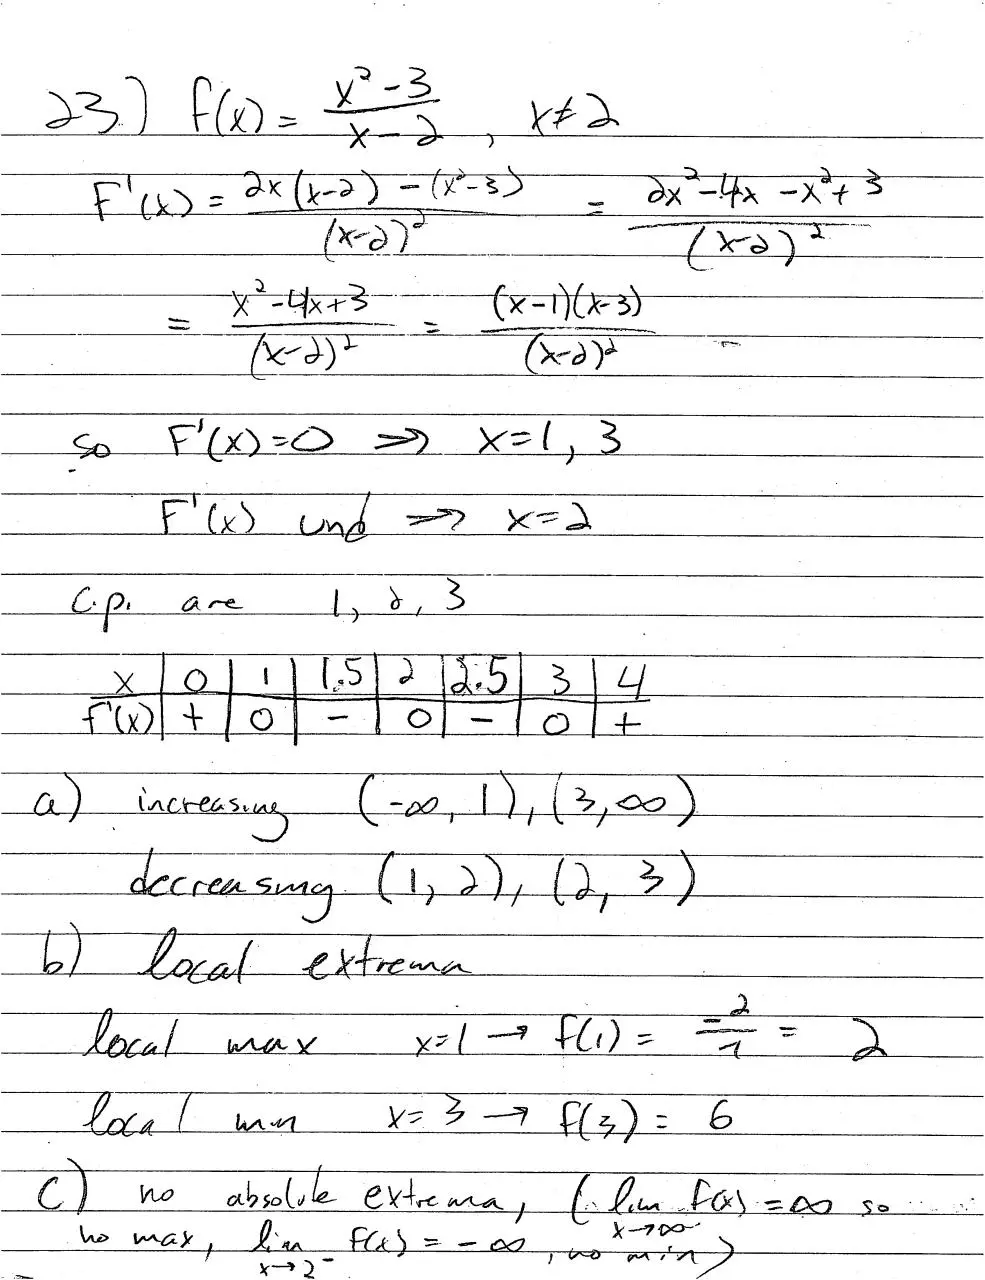 23) f(x) = (x² - 3)/(x - 2), x ≠ 2
F'(x) = (2x(x-2) - (x²-3))/(x-2)² = (2x² - 4x - x² + 3)/(x-2)²
= (x² - 4x + 3)/(x-2)² = ((x-1)(x-3))/(x-2)²
so F'(x) = 0 ⇒ x = 1, 3
F'(x) und ⇒ x = 2
c.p. are 1, 2, 3
x | 0 | 1 | 1.5 | 2 | 2.5 | 3 | 4
f'(x) | + | 0 | - | 0 | - | 0 | +
a) increasing (-∞, 1), (3, ∞)
decreasing (1, 2), (2, 3)
b) local extrema
local max x=1 → f(1) = -2/-1 = 2
local min x=3 → f(3) = 6
c) no absolute extrema, (lim x→∞ f(x) = ∞ so
no max, lim x→2⁻ f(x) = -∞, no min)